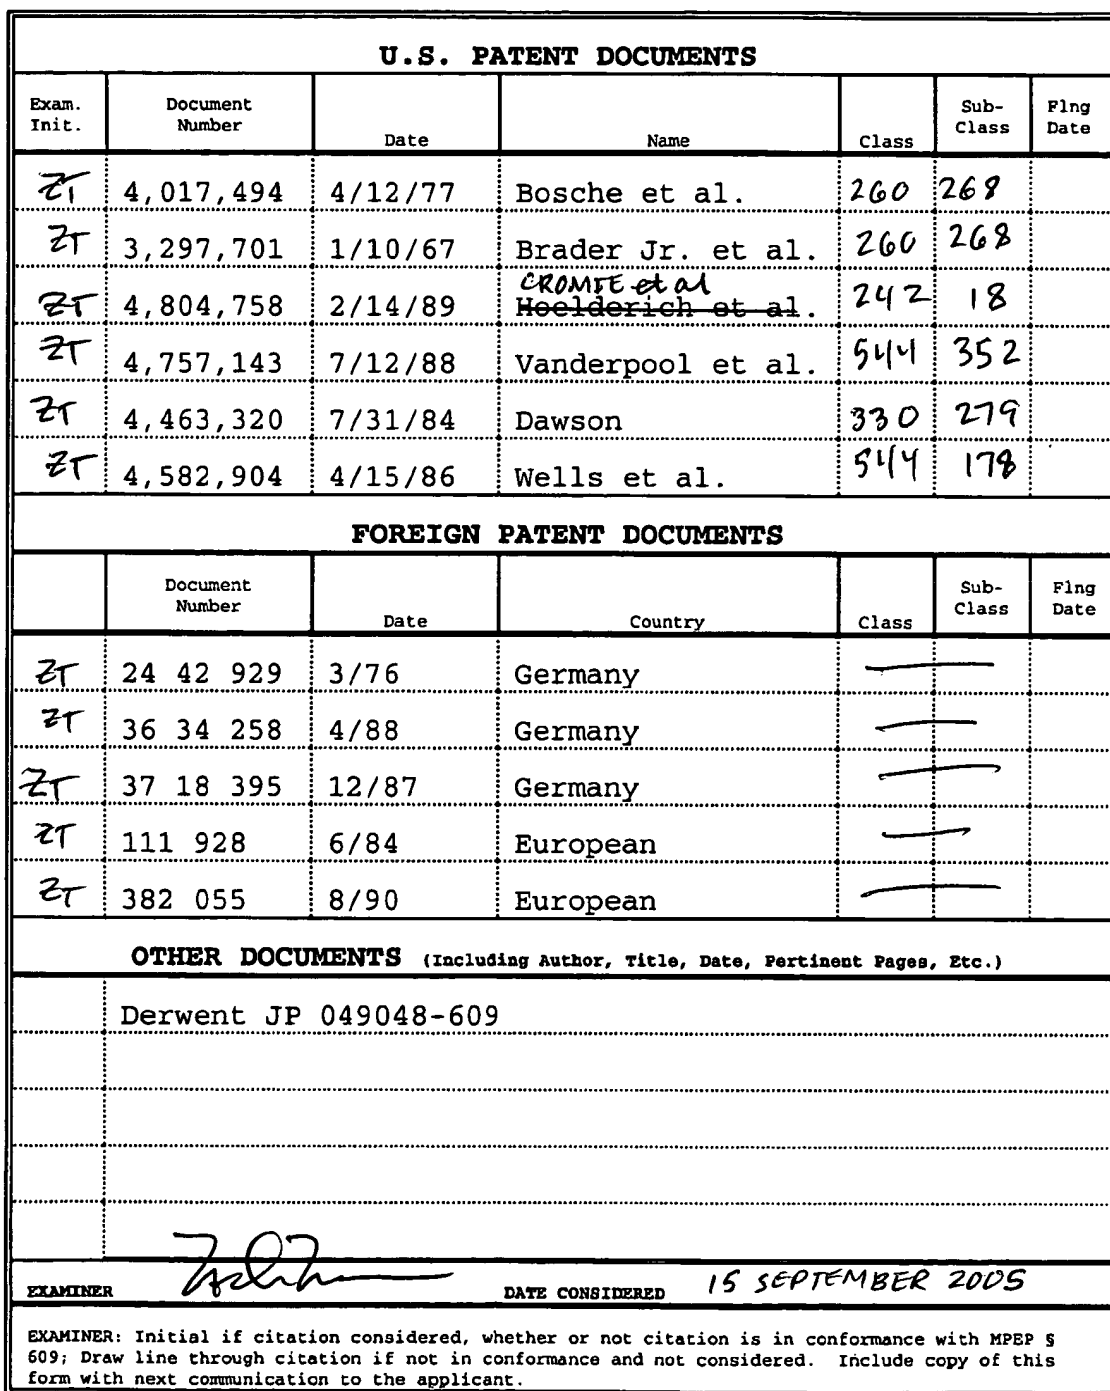 U.S. PATENT DOCUMENTS
Exam. Init. Document Number Date Name Class Sub-Class Flng Date
ZT 4,017,494 4/12/77 Bosche et al. 260 268
ZT 3,297,701 1/10/67 Brader Jr. et al. 260 268
CROMIE et al
ZT 4,804,758 2/14/89 Hoelderich et al. 242 18
ZT 4,757,143 7/12/88 Vanderpool et al. 544 352
ZT 4,463,320 7/31/84 Dawson 330 279
ZT 4,582,904 4/15/86 Wells et al. 544 178
FOREIGN PATENT DOCUMENTS
Document Number Date Country Class Sub-Class Flng Date
ZT 24 42 929 3/76 Germany —
ZT 36 34 258 4/88 Germany —
ZT 37 18 395 12/87 Germany —
ZT 111 928 6/84 European —
ZT 382 055 8/90 European —
OTHER DOCUMENTS (Including Author, Title, Date, Pertinent Pages, Etc.)
Derwent JP 049048-609
EXAMINER DATE CONSIDERED 15 SEPTEMBER 2005
EXAMINER: Initial if citation considered, whether or not citation is in conformance with MPEP §
609; Draw line through citation if not in conformance and not considered. Include copy of this
form with next communication to the applicant.